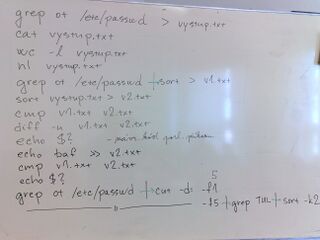 grep ot /etc/passwd > vystup.txt
cat vystup.txt
wc -l vystup.txt
nl vystup.txt
grep ot /etc/passwd | sort > v1.txt
sort vystup.txt > v2.txt
cmp v1.txt v2.txt
diff -u v1.txt v2.txt
echo $? -
echo baf >> v2.txt
cmp v1.txt v2.txt
echo $?
5
grep ot /etc/passwd | cut -d: -f1
-f5 | grep TUL | sort -k2